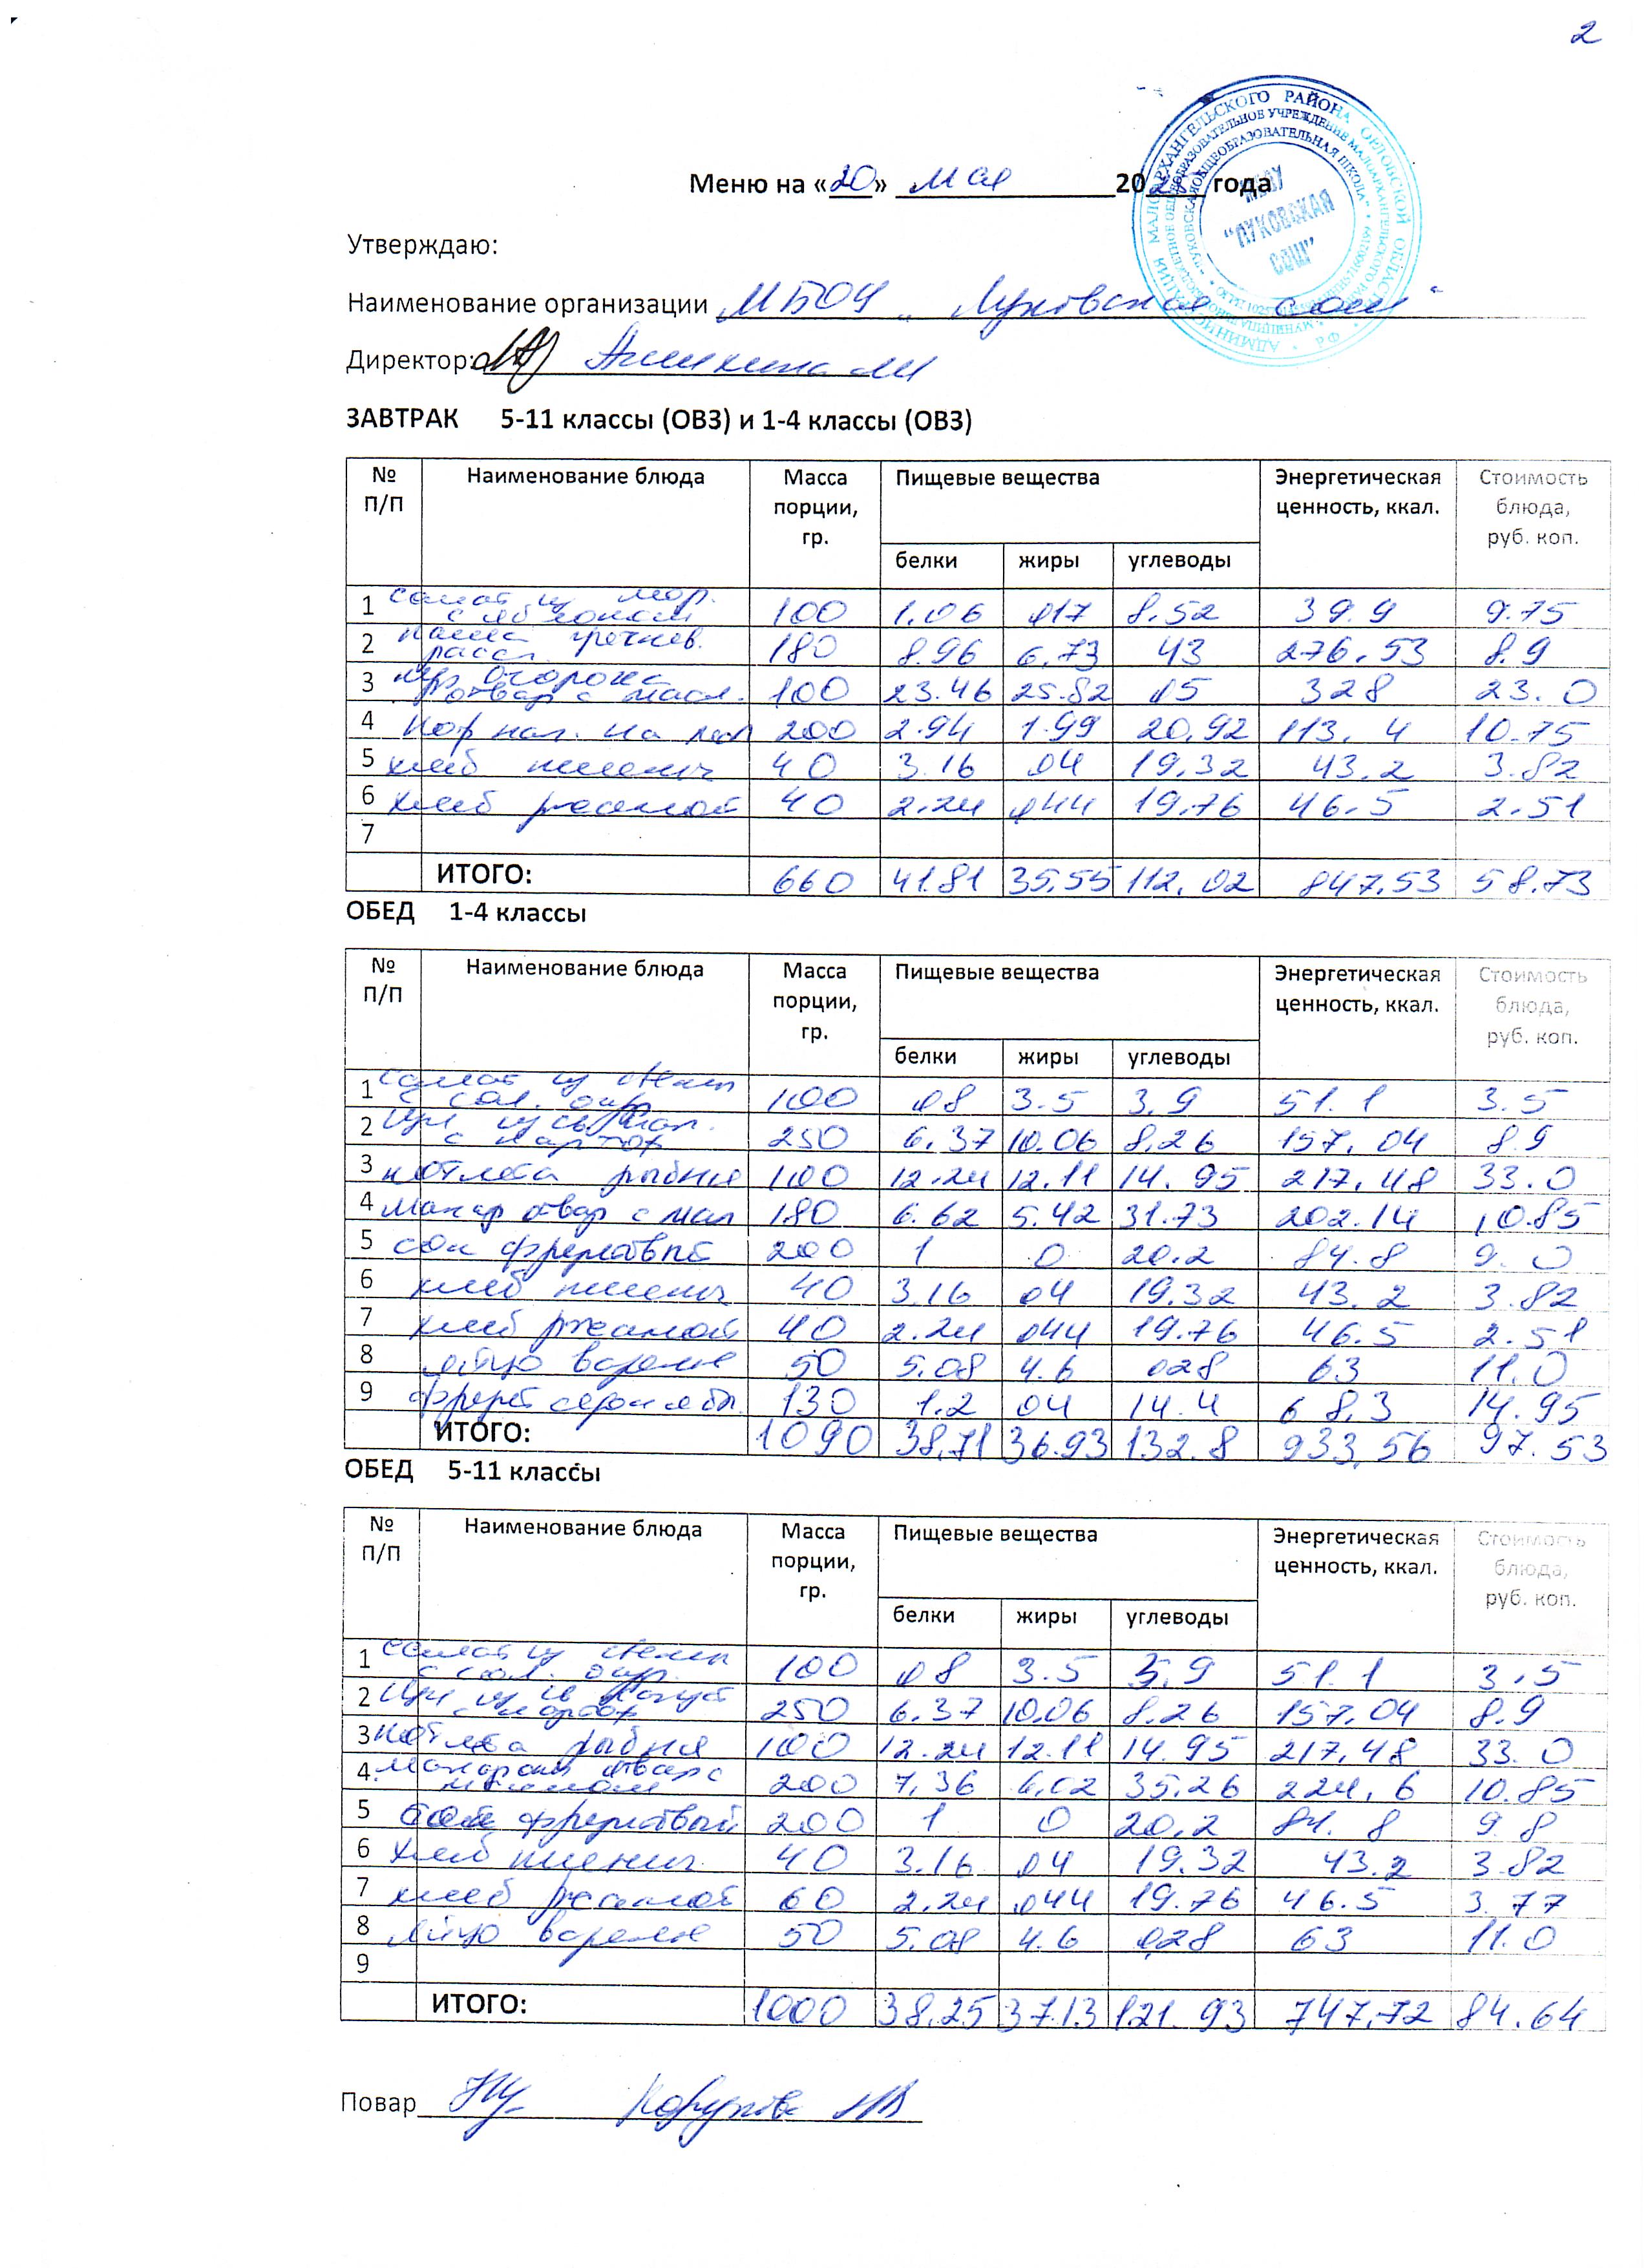 2
Меню на «20» мая 20 года
МБОУ
"ЛУКОВСКАЯ
СОШ"
Утверждаю:
Наименование организации МБОУ „Луковская сош"
Директор: Анихина
ЗАВТРАК 5-11 классы (ОВЗ) и 1-4 классы (ОВЗ)
№ П/П Наименование блюда Масса порции, гр. Пищевые вещества Энергетическая ценность, ккал. Стоимость блюда, руб. коп.
белки жиры углеводы
1 Салат из мор. с яблоком 100 1.06 017 8.52 39.9 9.75
2 каша гречнев. рассп. 180 8.96 6.73 43 276.53 8.9
3 отвар с масл. 100 23.46 25.82 05 328 23.0
4 Коф нап. на мол 200 2.94 1.99 20.92 113.4 10.75
5 хлеб пшенич 40 3.16 04 19.32 43.2 3.82
6 хлеб ржаной 40 2.24 044 19.76 46.5 2.51
7
ИТОГО: 660 41.81 35.55 112.02 847.53 58.73
ОБЕД 1-4 классы
№ П/П Наименование блюда Масса порции, гр. Пищевые вещества Энергетическая ценность, ккал. Стоимость блюда, руб. коп.
белки жиры углеводы
1 Салат из свеклы с сол. огур. 100 08 3.5 3.9 51.1 3.5
2 Щи из св с картоф 250 6.37 10.06 8.26 157.04 8.9
3 котлета рыбная 100 12.24 12.11 14.95 217.48 33.0
4 макар отвар с мал 180 6.62 5.42 31.73 202.14 10.85
5 сок фруктовый 200 1 0 20.2 84.8 9.0
6 хлеб пшенич 40 3.16 04 19.32 43.2 3.82
7 хлеб ржаной 40 2.24 044 19.76 46.5 2.51
8 яйцо варёное 50 5.08 4.6 028 63 11.0
9 фрукт 130 1.2 04 14.4 68.3 14.95
ИТОГО: 1090 38.71 36.93 132.8 933.56 97.53
ОБЕД 5-11 классы
№ П/П Наименование блюда Масса порции, гр. Пищевые вещества Энергетическая ценность, ккал. Стоимость блюда, руб. коп.
белки жиры углеводы
1 Салат из свеклы с сол. огур. 100 08 3.5 3.9 51.1 3.5
2 Щи из св капуст с картоф 250 6.37 10.06 8.26 157.04 8.9
3 котлета рыбная 100 12.24 12.11 14.95 217.48 33.0
4 макароны отвар с маслом 200 7.36 6.02 35.26 224.6 10.85
5 сок фруктовый 200 1 0 20.2 84.8 9.8
6 хлеб пшенич. 40 3.16 04 19.32 43.2 3.82
7 хлеб ржаной 60 2.24 044 19.76 46.5 3.77
8 яйцо варёное 50 5.08 4.6 028 63 11.0
9
ИТОГО: 1000 38.25 37.13 121.93 747.72 84.64
Повар